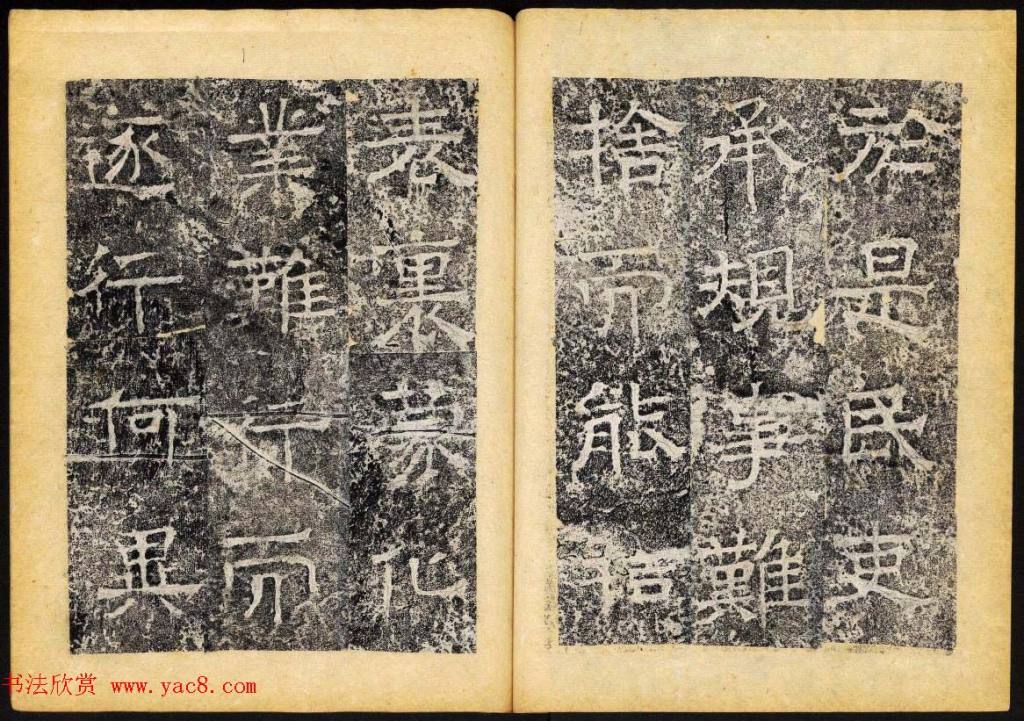 於是民吏
承規事難
捨而能
表裏慕化
業難行而
逐行何異
书法欣赏 www.yac8.com